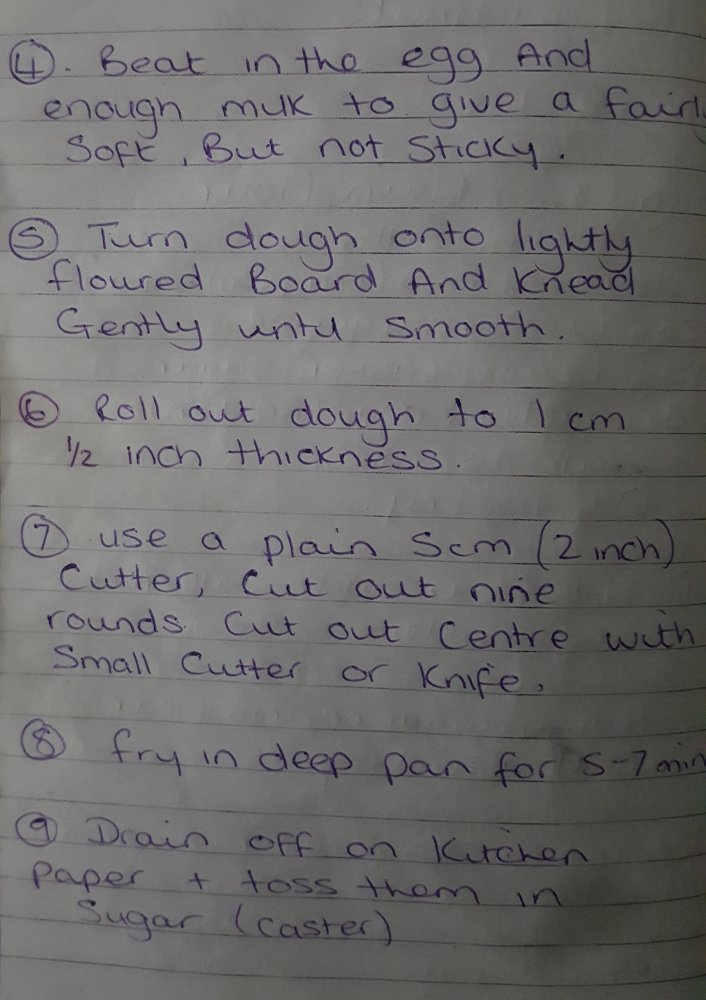 ④. Beat in the egg And
enough milk to give a fairly
Soft, But not Sticky.
⑤ Turn dough onto lightly
floured Board And Knead
Gently until Smooth.
⑥ Roll out dough to 1 cm
1/2 inch thickness.
⑦ use a plain 5cm (2 inch)
Cutter, Cut out nine
rounds. Cut out Centre with
Small Cutter or Knife.
⑧ fry in deep pan for 5-7 min
⑨ Drain off on Kitchen
paper + toss them in
Sugar (caster)